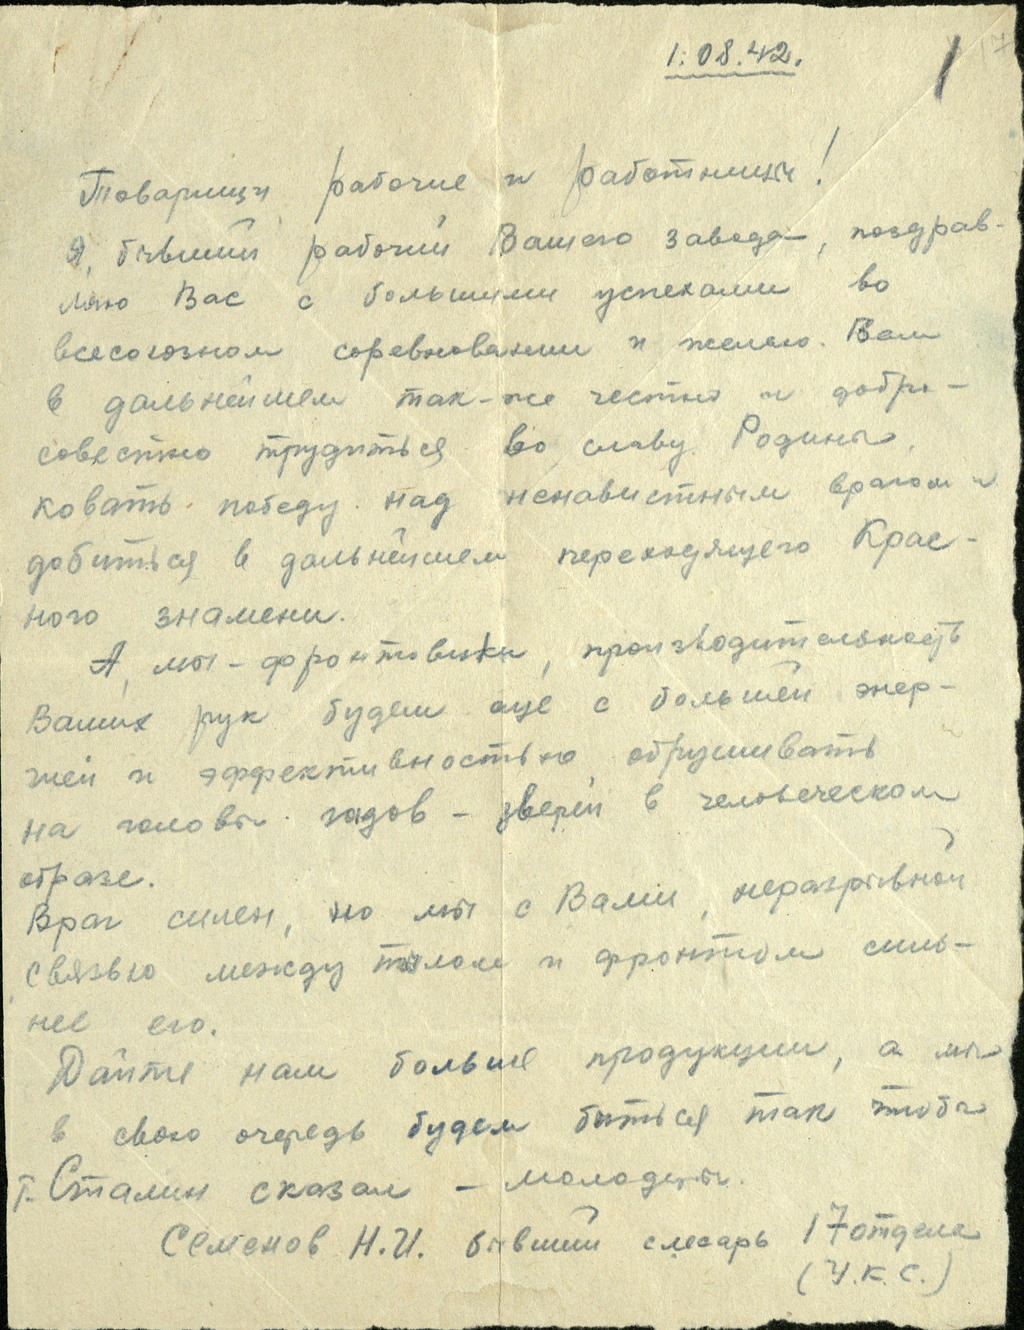 1.08.42.
17
Товарищи рабочие и работницы!
Я, бывший рабочий Вашего завода, поздрав-
ляю Вас с большими успехами во
всесоюзном соревновании и желаю Вам
в дальнейшем так-же честно и добро-
совестно трудиться во славу Родины,
ковать победу над ненавистным врагом и
добиться в дальнейшем переходящего Крас-
ного знамени.
А, мы - фронтовики, производительность
Ваших рук будем еще с большей энер-
гией и эффективностью обрушивать
на головы гадов - зверей в человеческом
образе.
Враг силен, но мы с Вами, неразрывной
связью между тылом и фронтом силь-
нее его.
Дайте нам больше продукции, а мы
в свою очередь будем биться так чтобы
т. Сталин сказал - молодцы.
Семенов Н.И. бывший слесарь 17 отдела
(У.К.С.)